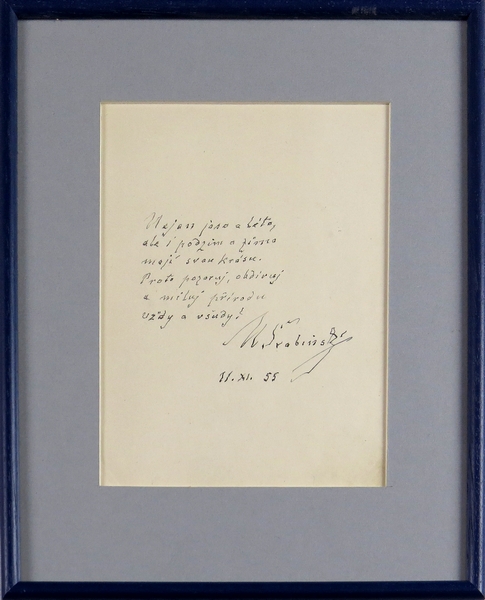 Nejen jaro a léto,
ale i podzim a zima
mají svou krásu.
Proto pozoruj, obdivuj
a miluj přírodu
vždy a všudy!
M Švabinský
11. XI. 55